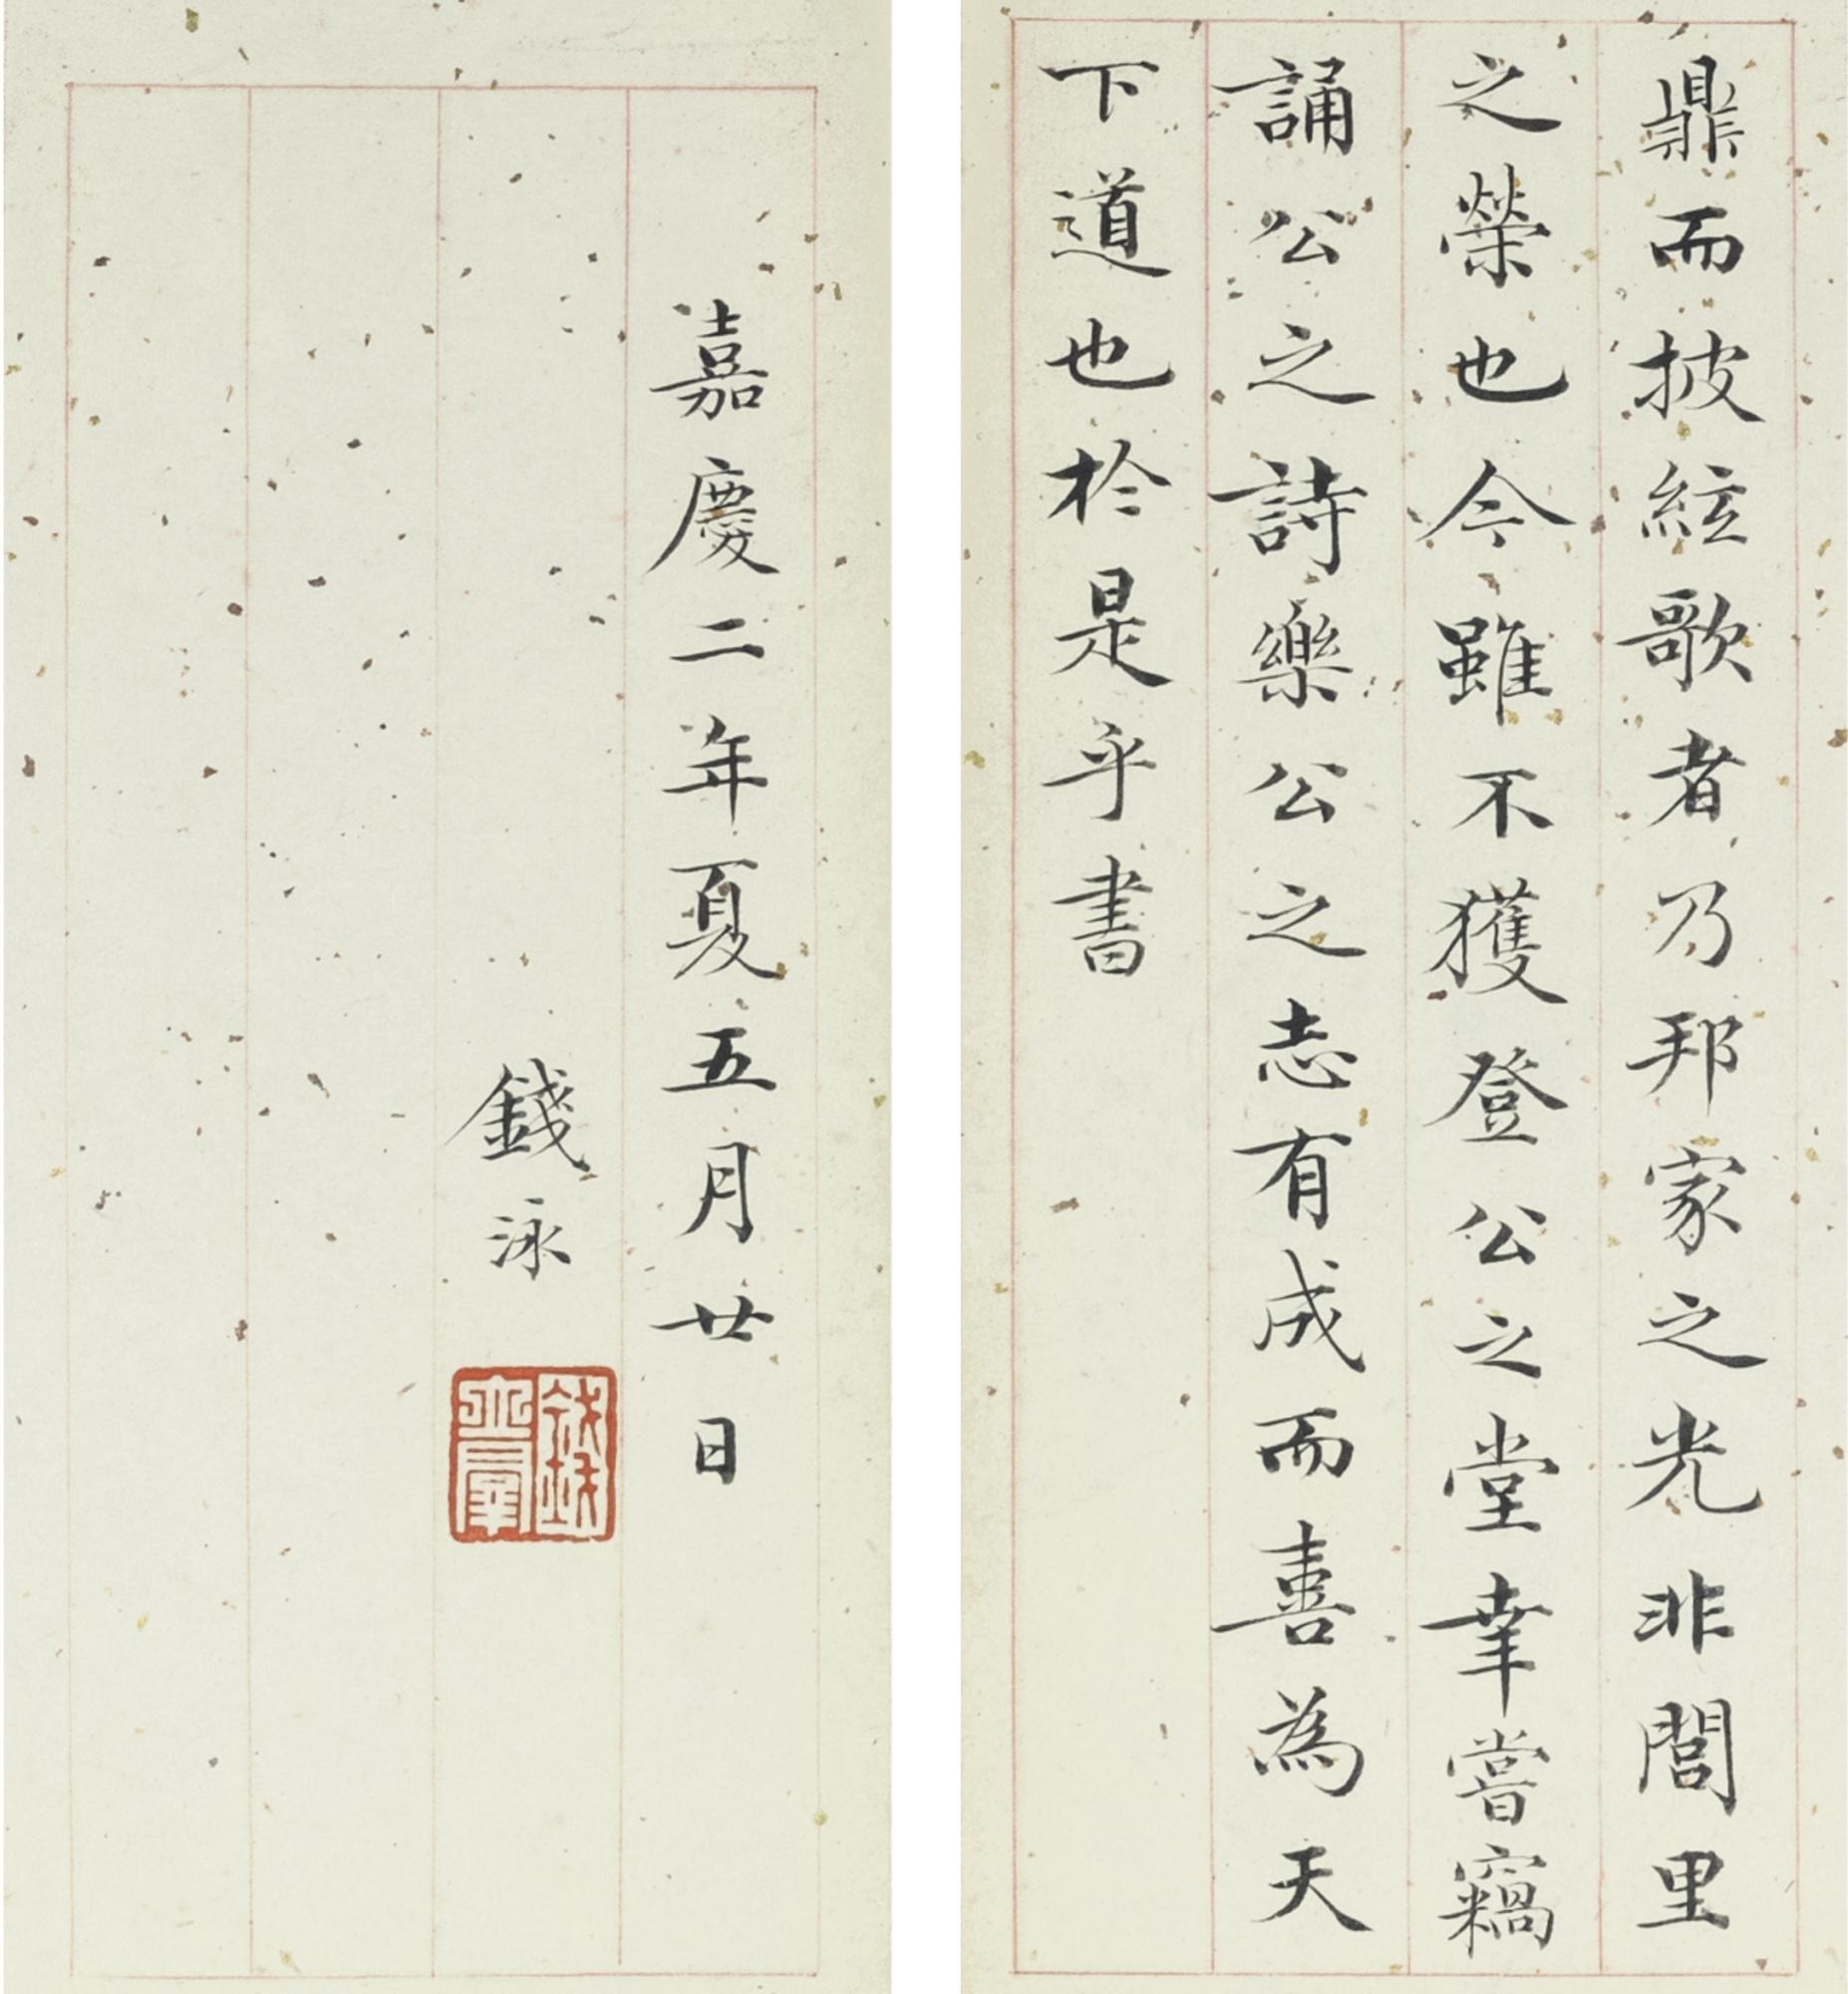 鼎而披絃歌者乃邦家之光非閭里
之榮也今雖不獲登公之堂幸嘗竊
誦公之詩樂公之志有成而喜為天
下道也於是乎書
嘉慶二年夏五月廿日
錢泳